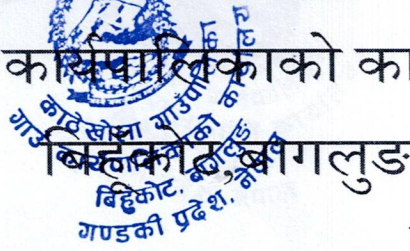 कार्यपालिकाको का
बिहुँकोट, बागलुङ
काठेखोला गाउँपालिका
गाउँ कार्यपालिकाको कार्यालय
बिहुँकोट, बागलुङ
गण्डकी प्रदेश, नेपाल